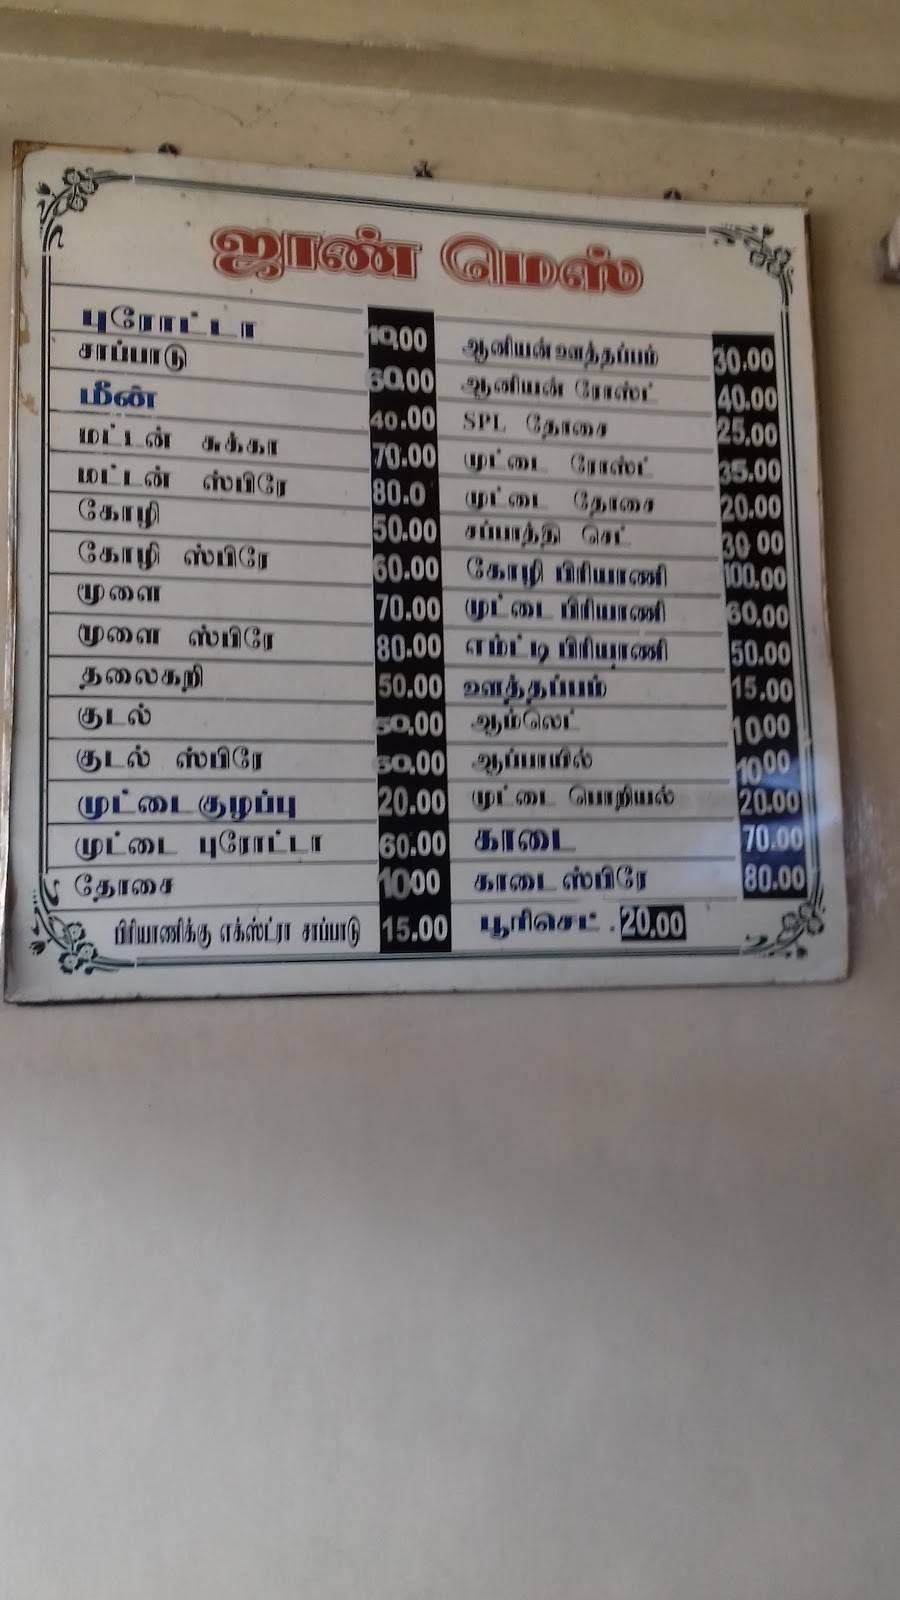 ஜான் மெஸ்
புரோட்டா 10.00
சாப்பாடு 60.00
மீன் 40.00
மட்டன் சுக்கா 70.00
மட்டன் ஸ்பிரே 80.0
கோழி 50.00
கோழி ஸ்பிரே 60.00
மூளை 70.00
மூளை ஸ்பிரே 80.00
தலைகறி 50.00
குடல் 50.00
குடல் ஸ்பிரே 60.00
முட்டைகுழப்பு 20.00
முட்டை புரோட்டா 60.00
தோசை 1000
பிரியாணிக்கு எக்ஸ்ட்ரா சாப்பாடு 15.00
ஆனியன்ஊத்தப்பம் 30.00
ஆனியன் ரோஸ்ட் 40.00
SPL தோசை 25.00
முட்டை ரோஸ்ட் 35.00
முட்டை தோசை 20.00
சப்பாத்தி செட் 30 00
கோழி பிரியாணி 100.00
முட்டை பிரியாணி 60.00
எம்ட்டி பிரியாணி 50.00
ஊத்தப்பம் 15.00
ஆம்லெட் 10.00
ஆப்பாயில் 10.00
முட்டை பொறியல் 20.00
காடை 70.00
காடை ஸ்பிரே 80.00
பூரிசெட் . 20.00